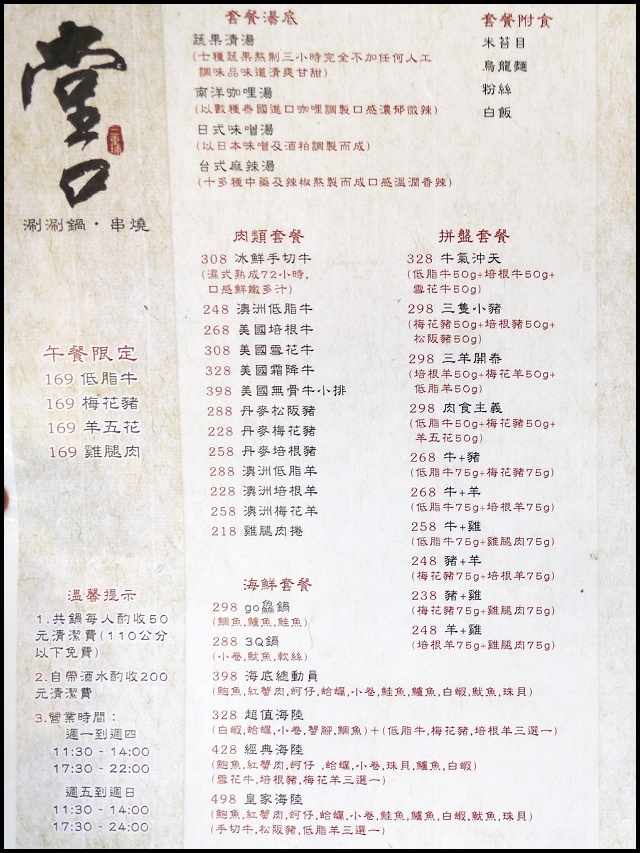 堂口
涮涮鍋·串燒
午餐限定
169 低脂牛
169 梅花豬
169 羊五花
169 雞腿肉
溫馨提示
1.共鍋每人酌收50
元清潔費(110公分
以下免費)
2.自帶酒水酌收200
元清潔費
3.營業時間：
週一到週四
11:30 - 14:00
17:30 - 22:00
週五到週日
11:30 - 14:00
17:30 - 24:00
套餐湯底
蔬果清湯
(七種蔬果熬制三小時完全不加任何人工
調味品味道清爽甘甜)
南洋咖哩湯
(以數種泰國進口咖哩調製口感濃郁微辣)
日式味噌湯
(以日本味噌及酒粕調製而成)
台式麻辣湯
(十多種中藥及辣椒熬製而成口感溫潤香辣)
套餐附食
米苔目
烏龍麵
粉絲
白飯
肉類套餐
308 冰鮮手切牛
(濕式熟成72小時,
口感鮮嫩多汁)
248 澳洲低脂牛
268 美國培根牛
308 美國雪花牛
328 美國霜降牛
398 美國無骨牛小排
288 丹麥松阪豬
228 丹麥梅花豬
258 丹麥培根豬
288 澳洲低脂羊
228 澳洲培根羊
258 澳洲梅花羊
218 雞腿肉捲
拼盤套餐
328 牛氣沖天
(低脂牛50g+培根牛50g+
雪花牛50g)
298 三隻小豬
(梅花豬50g+培根豬50g+
松阪豬50g)
298 三羊開泰
(培根羊50g+梅花羊50g+
低脂羊50g)
298 肉食主義
(低脂牛50g+梅花豬50g+
羊五花50g)
268 牛+豬
(低脂牛75g+梅花豬75g)
268 牛+羊
(低脂牛75g+培根羊75g)
258 牛+雞
(低脂牛75g+雞腿肉75g)
248 豬+羊
(梅花豬75g+培根羊75g)
238 豬+雞
(梅花豬75g+雞腿肉75g)
248 羊+雞
(培根羊75g+雞腿肉75g)
海鮮套餐
298 go鱻鍋
(鯛魚,鱸魚,鮭魚)
288 3Q鍋
(小卷,魷魚,軟絲)
398 海底總動員
(鮑魚,紅蟹肉,蚵仔,蛤蠣,小卷,鮭魚,鱸魚,白蝦,魷魚,珠貝)
328 超值海陸
(白蝦,蛤蠣,小卷,蟹腳,鯛魚)+(低脂牛,梅花豬,培根羊三選一)
428 經典海陸
(鮑魚,紅蟹肉,蚵仔,蛤蠣,小卷,珠貝,鱸魚,白蝦)
(雪花牛,培根豬,梅花羊三選一)
498 皇家海陸
(鮑魚,紅蟹肉,蚵仔,蛤蠣,小卷,鮭魚,鱸魚,白蝦,魷魚,珠貝)
(手切牛,松阪豬,低脂羊三選一)